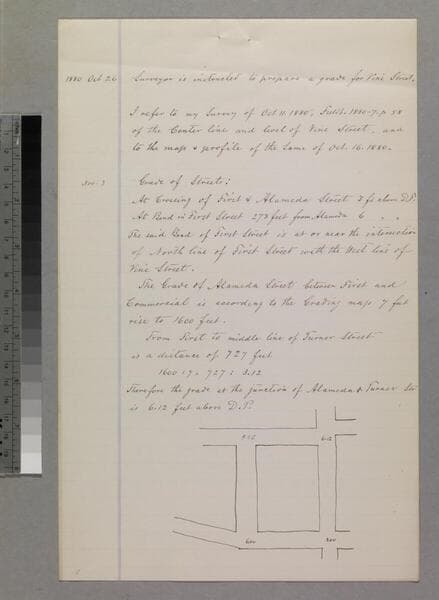 1880 Oct 26 Surveyor is instructed to prepare a grade for Vine Street.
I refer to my Survey of Oct. 11. 1880, Fieldb. 1880-7. p 58
of the Center line and level of Vine Street, and
to the map & profile of the Same of Oct. 16. 1880.
Nov. 3 Grade of Streets:
At Crossing of First & Alameda Street 3 ft above D.P.
At Bend in First Street 273 feet from Alameda 6 " "
The said Bend of First Street is at or near the intersection
of North line of First Street with the West line of
Vine Street.
The Grade of Alameda Street between First and
Commercial is according to the Grading map 7 feet
rise to 1600 feet.
From First to middle line of Turner Street
is a distance of 727 feet
1600 : 7 = 727 : 3.12
Therefore the grade at the junction of Alameda & Turner Str
is 6.12 feet above D.P.
6.12
6.00
3.00